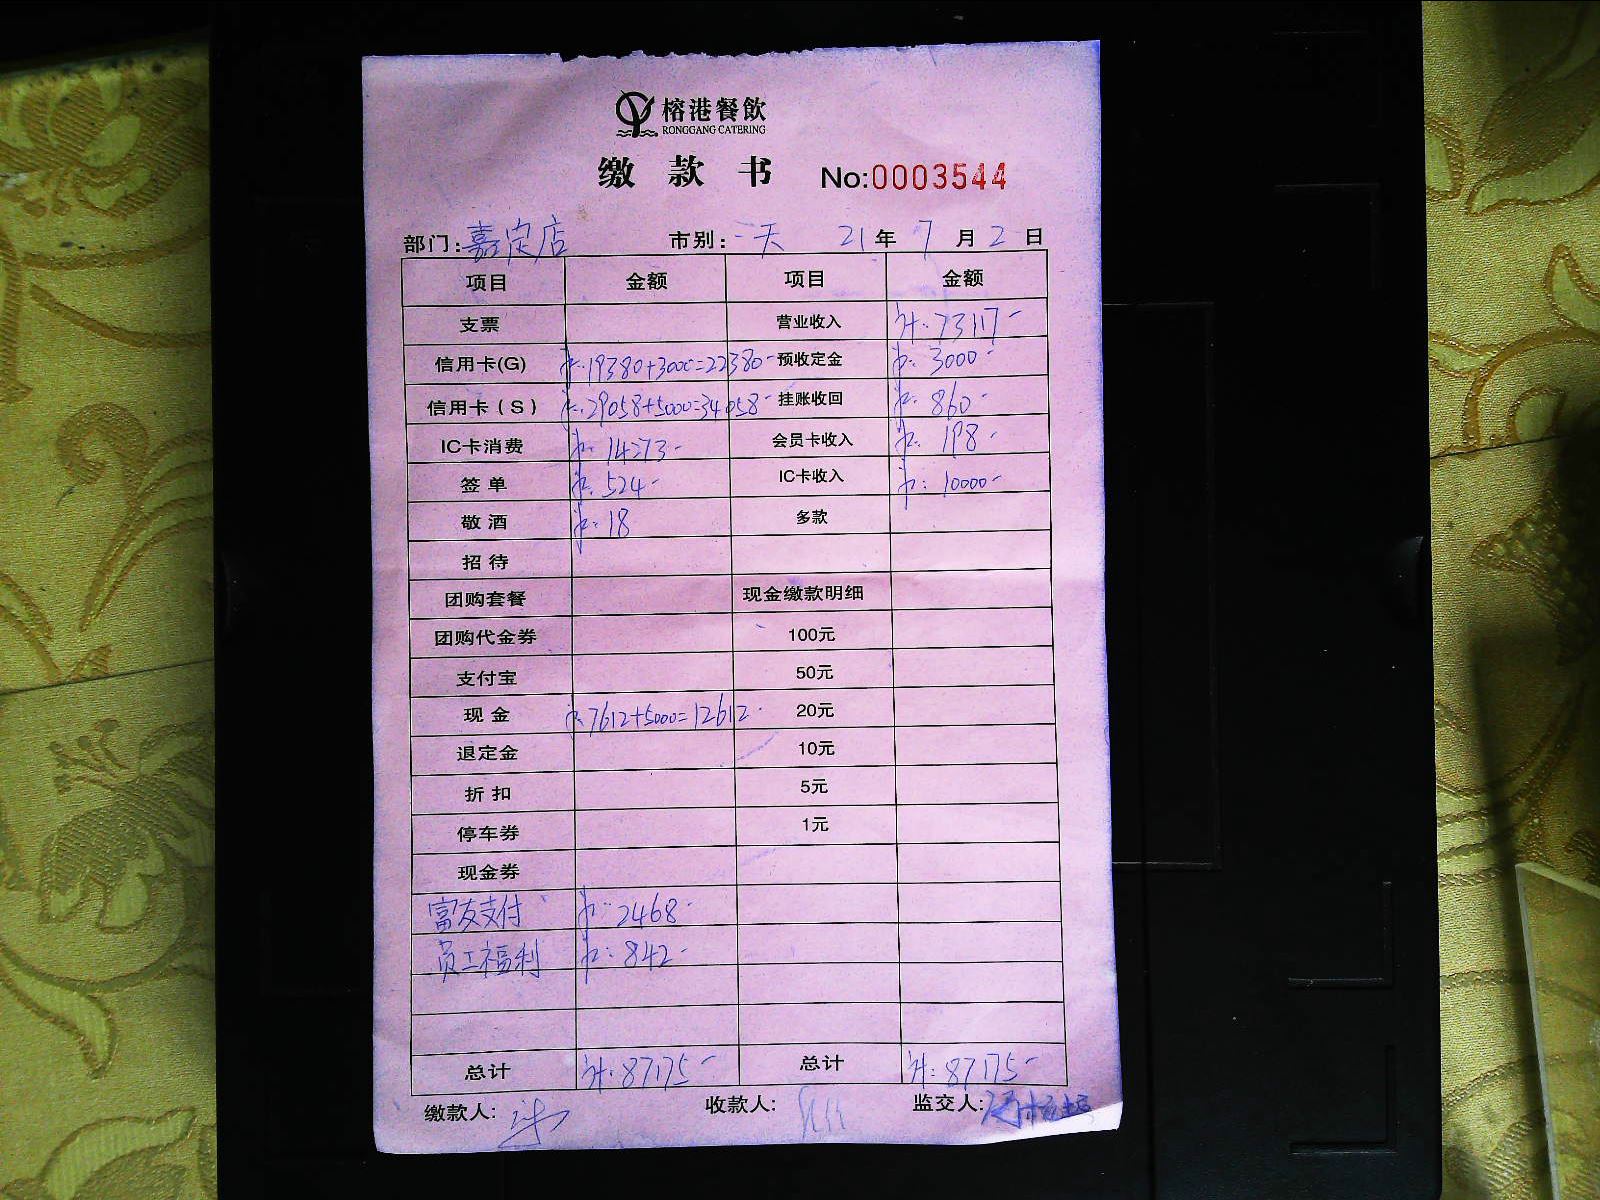 榕港餐飲
RONGGANG CATERING
缴款书 No:0003544
部门:嘉定店 市别:一天 21年7月2日
项目 金额 项目 金额
支票 营业收入 计:73117-
信用卡(G) 19380+3000=22380- 预收定金 3000-
信用卡（S） 29058+5000=34058- 挂账收回 860-
IC卡消费 14273- 会员卡收入 198-
签单 524- IC卡收入 10000-
敬酒 18 多款
招待
团购套餐 现金缴款明细
团购代金券 100元
支付宝 50元
现金 7612+5000=12612- 20元
退定金 10元
折扣 5元
停车券 1元
现金券
富友支付 2468-
员工福利 842-
总计 计:87175- 总计 计:87175-
缴款人: 收款人: 监交人: